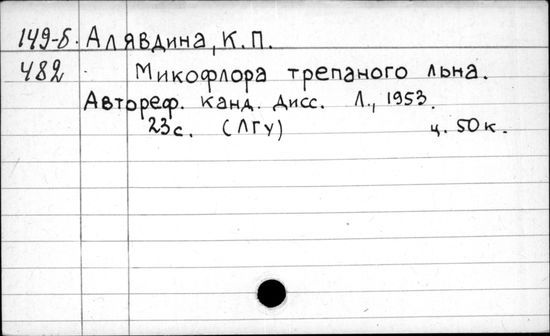 149-Б. Алявдина, К.П.
482 Микофлора трепаного льна.
Автореф. канд. дисс. Л., 1953.
23с. (ЛГУ) ц. 50к.